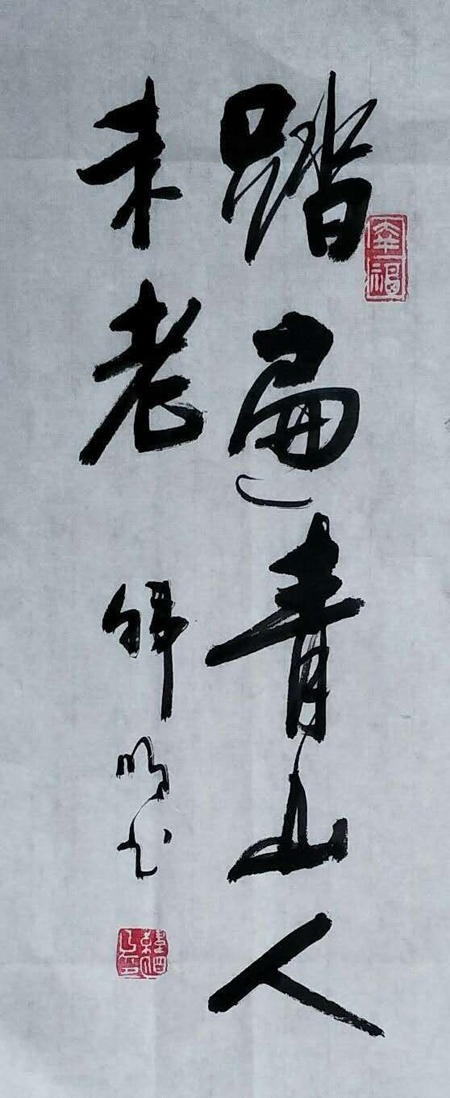 踏遍青山人
未老
明书
幸福